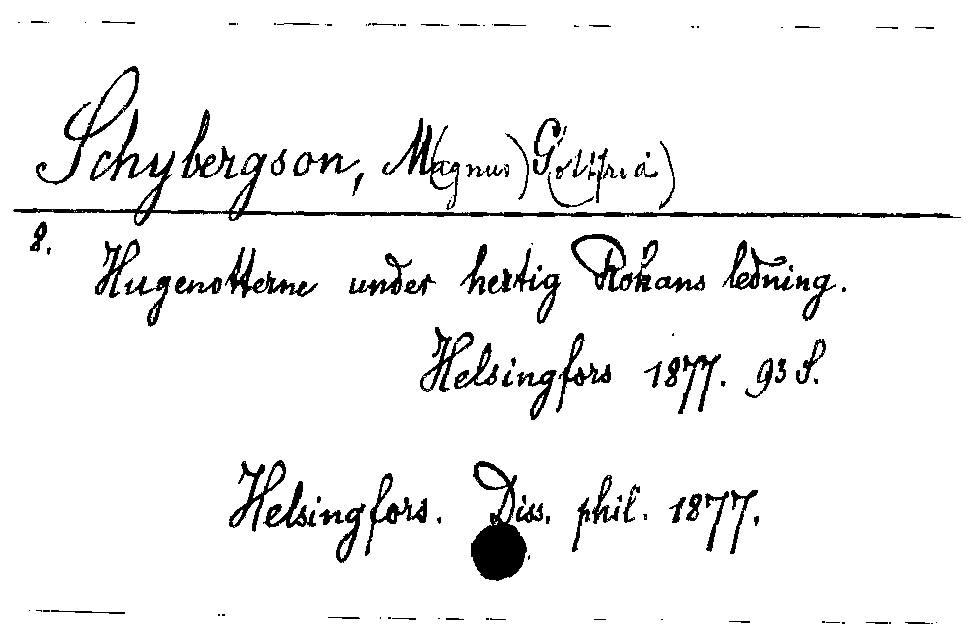 Schybergson, M(agnus) G(ottfrid)
8.
Hugenotterne under hertig Rohans ledning.
Helsingfors 1877. 93 S.
Helsingfors. Diss. phil. 1877.